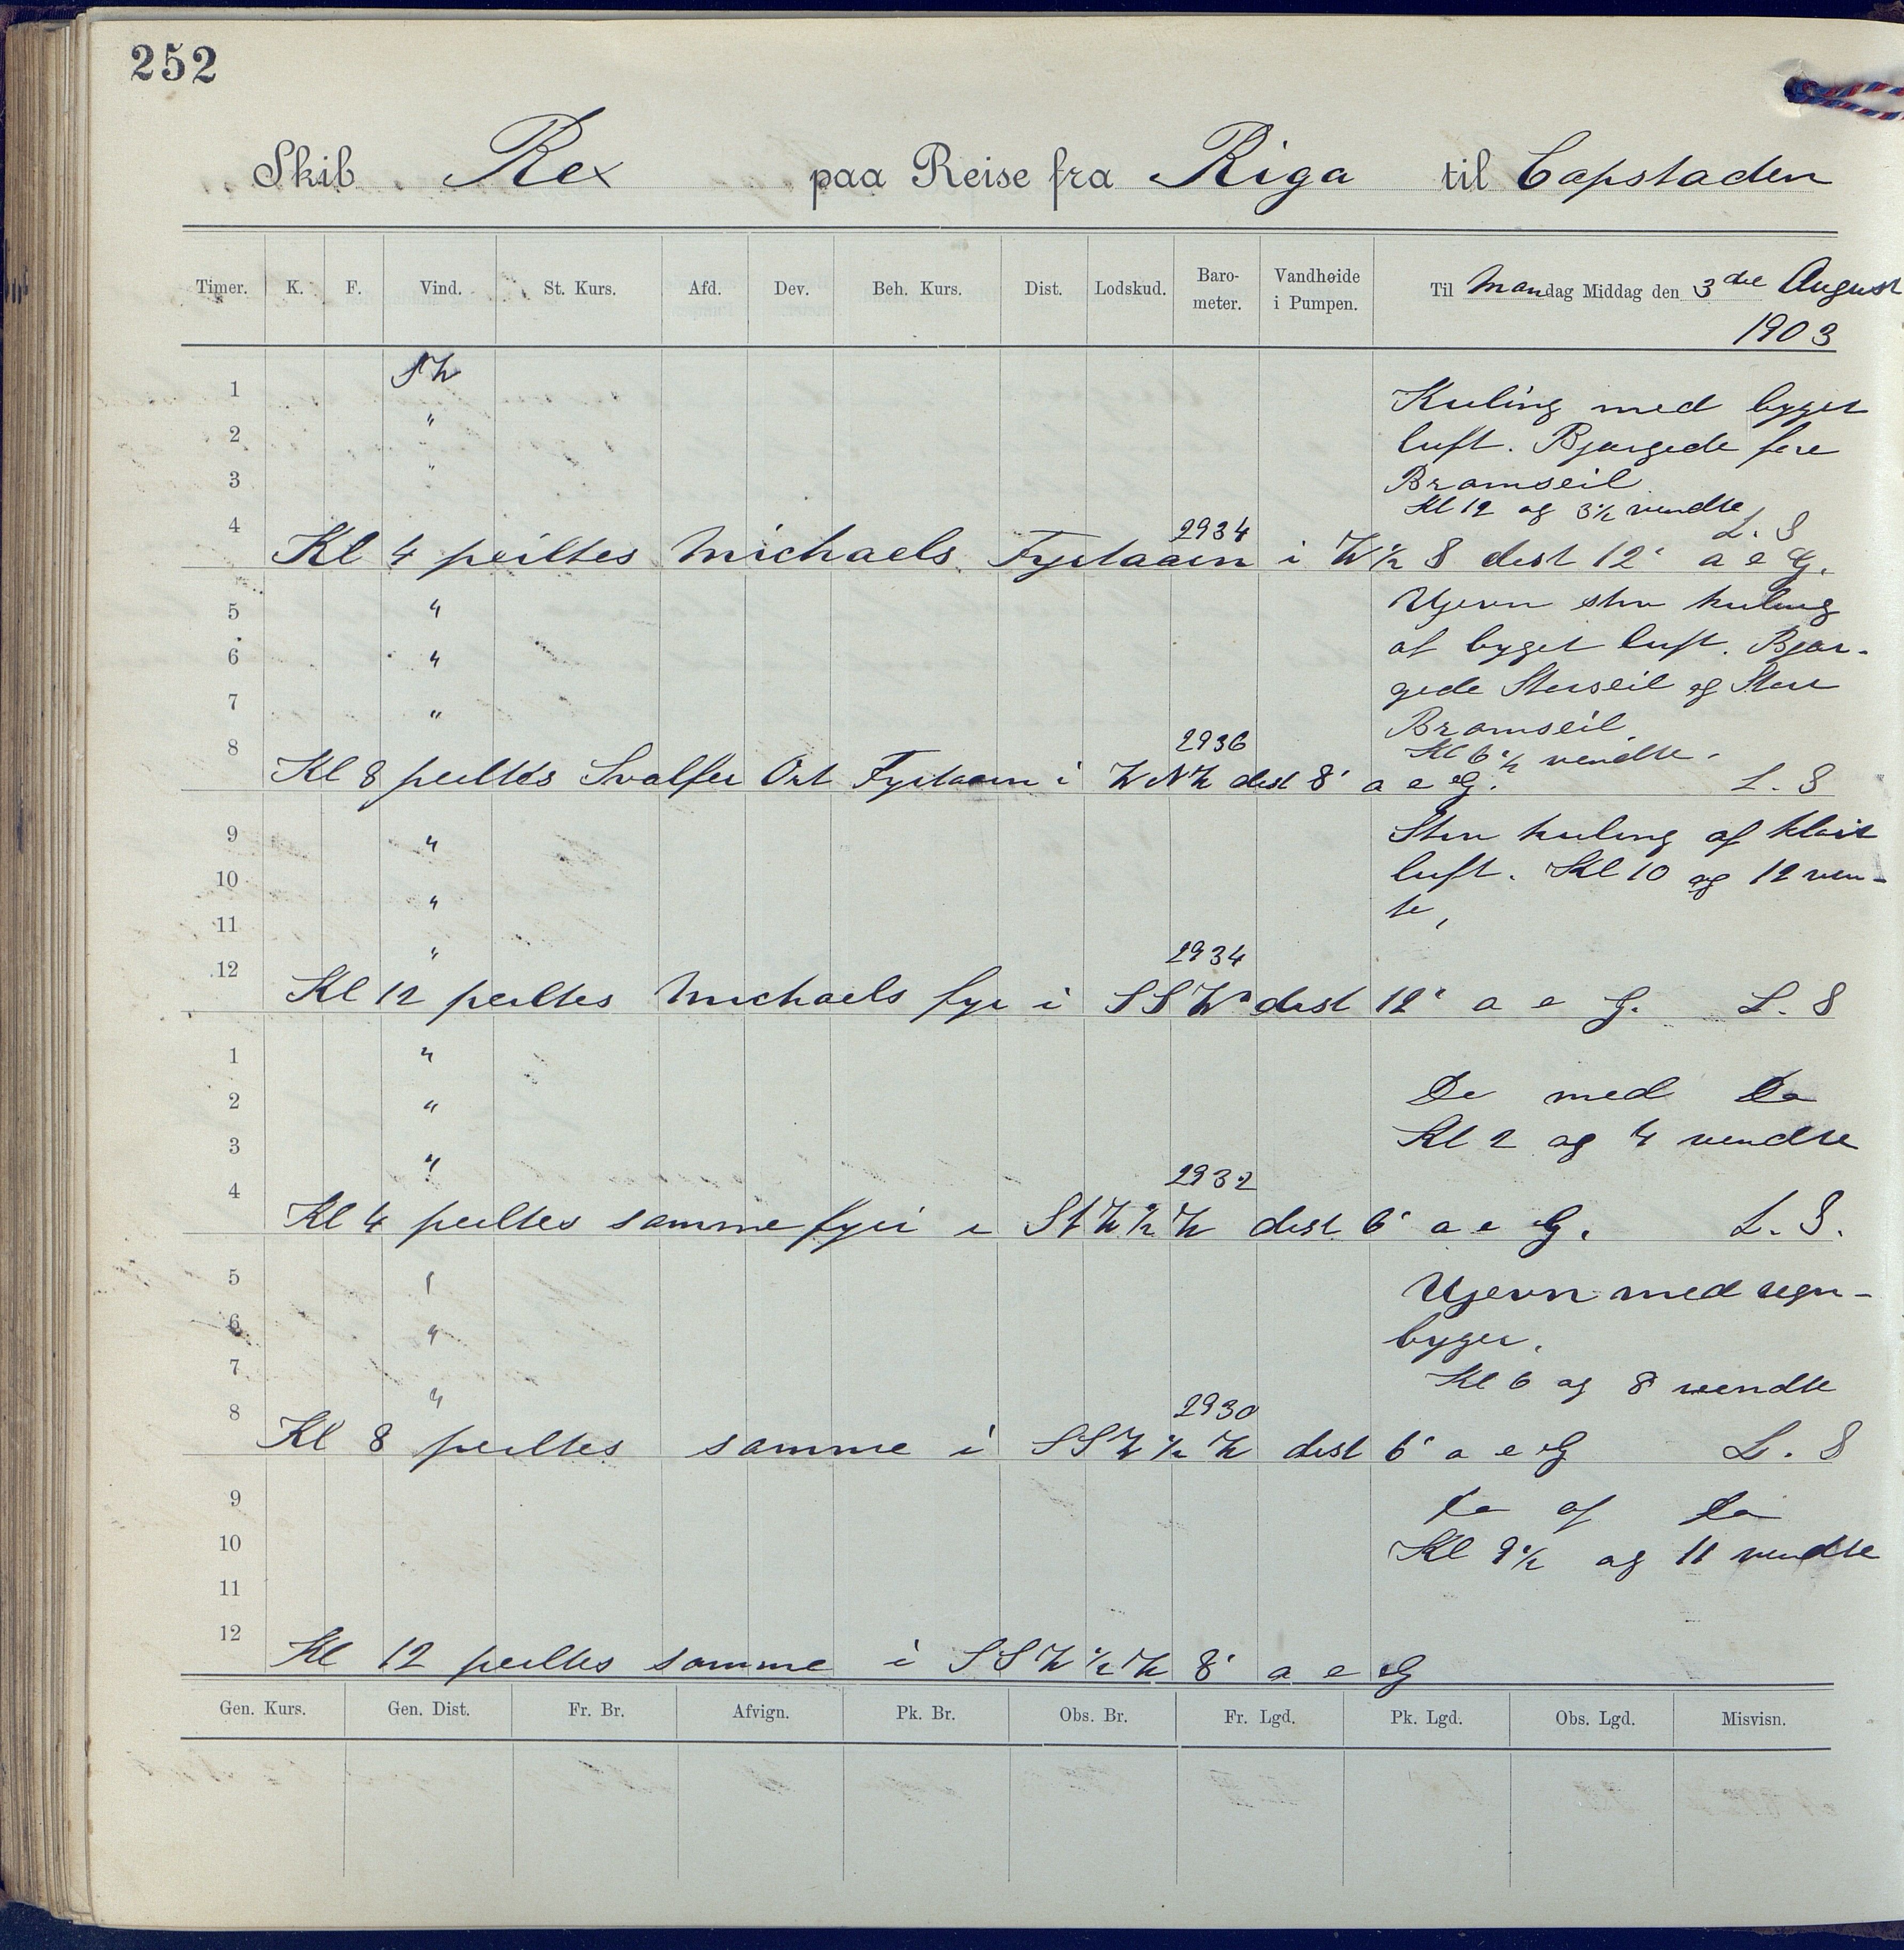 252
Skib Rex paa Reise fra Riga til Capstaden
Timer. K. F. Vind. St. Kurs. Afd. Dev. Beh. Kurs. Dist. Lodskud. Baro-meter. Vandhøide i Pumpen. Til Mandag Middag den 3die August
1903
SW
1 Kuling med byget
2 " luft. Bjærgede fore
3 " Bramseil
Kl 12 og 3½ vendte
4 2934 L. S
Kl 4 peiltes Michaels Fyrtaarn i W½ S dist 12' a e G.
5 " Ujevn stiv kuling
6 " af byget luft. Bjær-
7 " gede Storseil og Store
Bramseil
8 2936 Kl 6½ vendte.
Kl 8 peiltes Svalfer Ort Fyrtaarn i WNW dist 8' a e G. L. S
9 " Stiv kuling af klar
10 " luft. Kl 10 og 12 ven-
11 " te,
12 2934
Kl 12 peiltes Michaels fyr i SSW dist 12' a e G. L. S
1 "
2 " Do med Do
3 " Kl 2 og 4 vendte
4 2932
Kl 4 peiltes samme fyr i StW½W dist 6' a e G. L. S.
5 " Ujevn med regn-
6 " byger.
7 " Kl 6 og 8 vendte
8 2930
Kl 8 peiltes samme i SSW½W dist 6' a e G L. S
9 Do af Do
10 Kl 9½ og 11 vendte
11
12
Kl 12 peiltes samme i SSW½W 8' a e G
Gen. Kurs. Gen. Dist. Fr. Br. Afvign. Pk. Br. Obs. Br. Fr. Lgd. Pk. Lgd. Obs. Lgd. Misvisn.